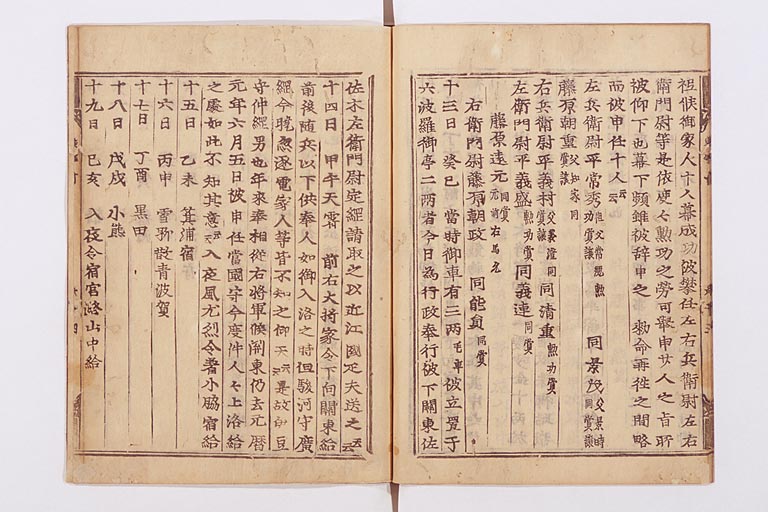 祖候御家人十人募成功被擧任左右兵衛尉左右
衛門尉等是依度々勲功之勞可擧申廿人之旨所
被仰下也幕下頻雖被辞申之 勅命再往之間略
而被申任十人云云
左兵衛尉平常秀功賞讓 同景茂父景時同賞讓
藤原朝重賞讓父知家同
右兵衛尉平義村父義澄同賞讓 同清重勲功賞
左衛門尉平義盛勲功賞 同義連同賞
藤原遠元元前右馬允同賞
右衛門尉藤原朝政 同能員同賞
十三日 癸巳 當時御車有三兩毛車被立置于
六波羅御亭二兩者今日為行政奉行被下關東佐
佐木左衛門尉定經請取之以近江國疋夫送之云云
十四日 甲午天霽 前右大將家令下向關東給
前後随兵以下供奉人如御入洛之時但駿河守廣
經今曉怱逐電家人等皆不知之仰天云云是故伊豆
守仲經男也年來奉相從右將軍候關東仍去元曆
元年六月五日被申任當國守今度件人々上洛給
之處如此不知其意云云入夜風尤烈令著小脇宿給
十五日 乙未 箕浦宿
十六日 丙申 雪 青波賀
十七日 丁酉 黒田
十八日 戊戌 小熊
十九日 己亥 入夜令宿宮路山中給